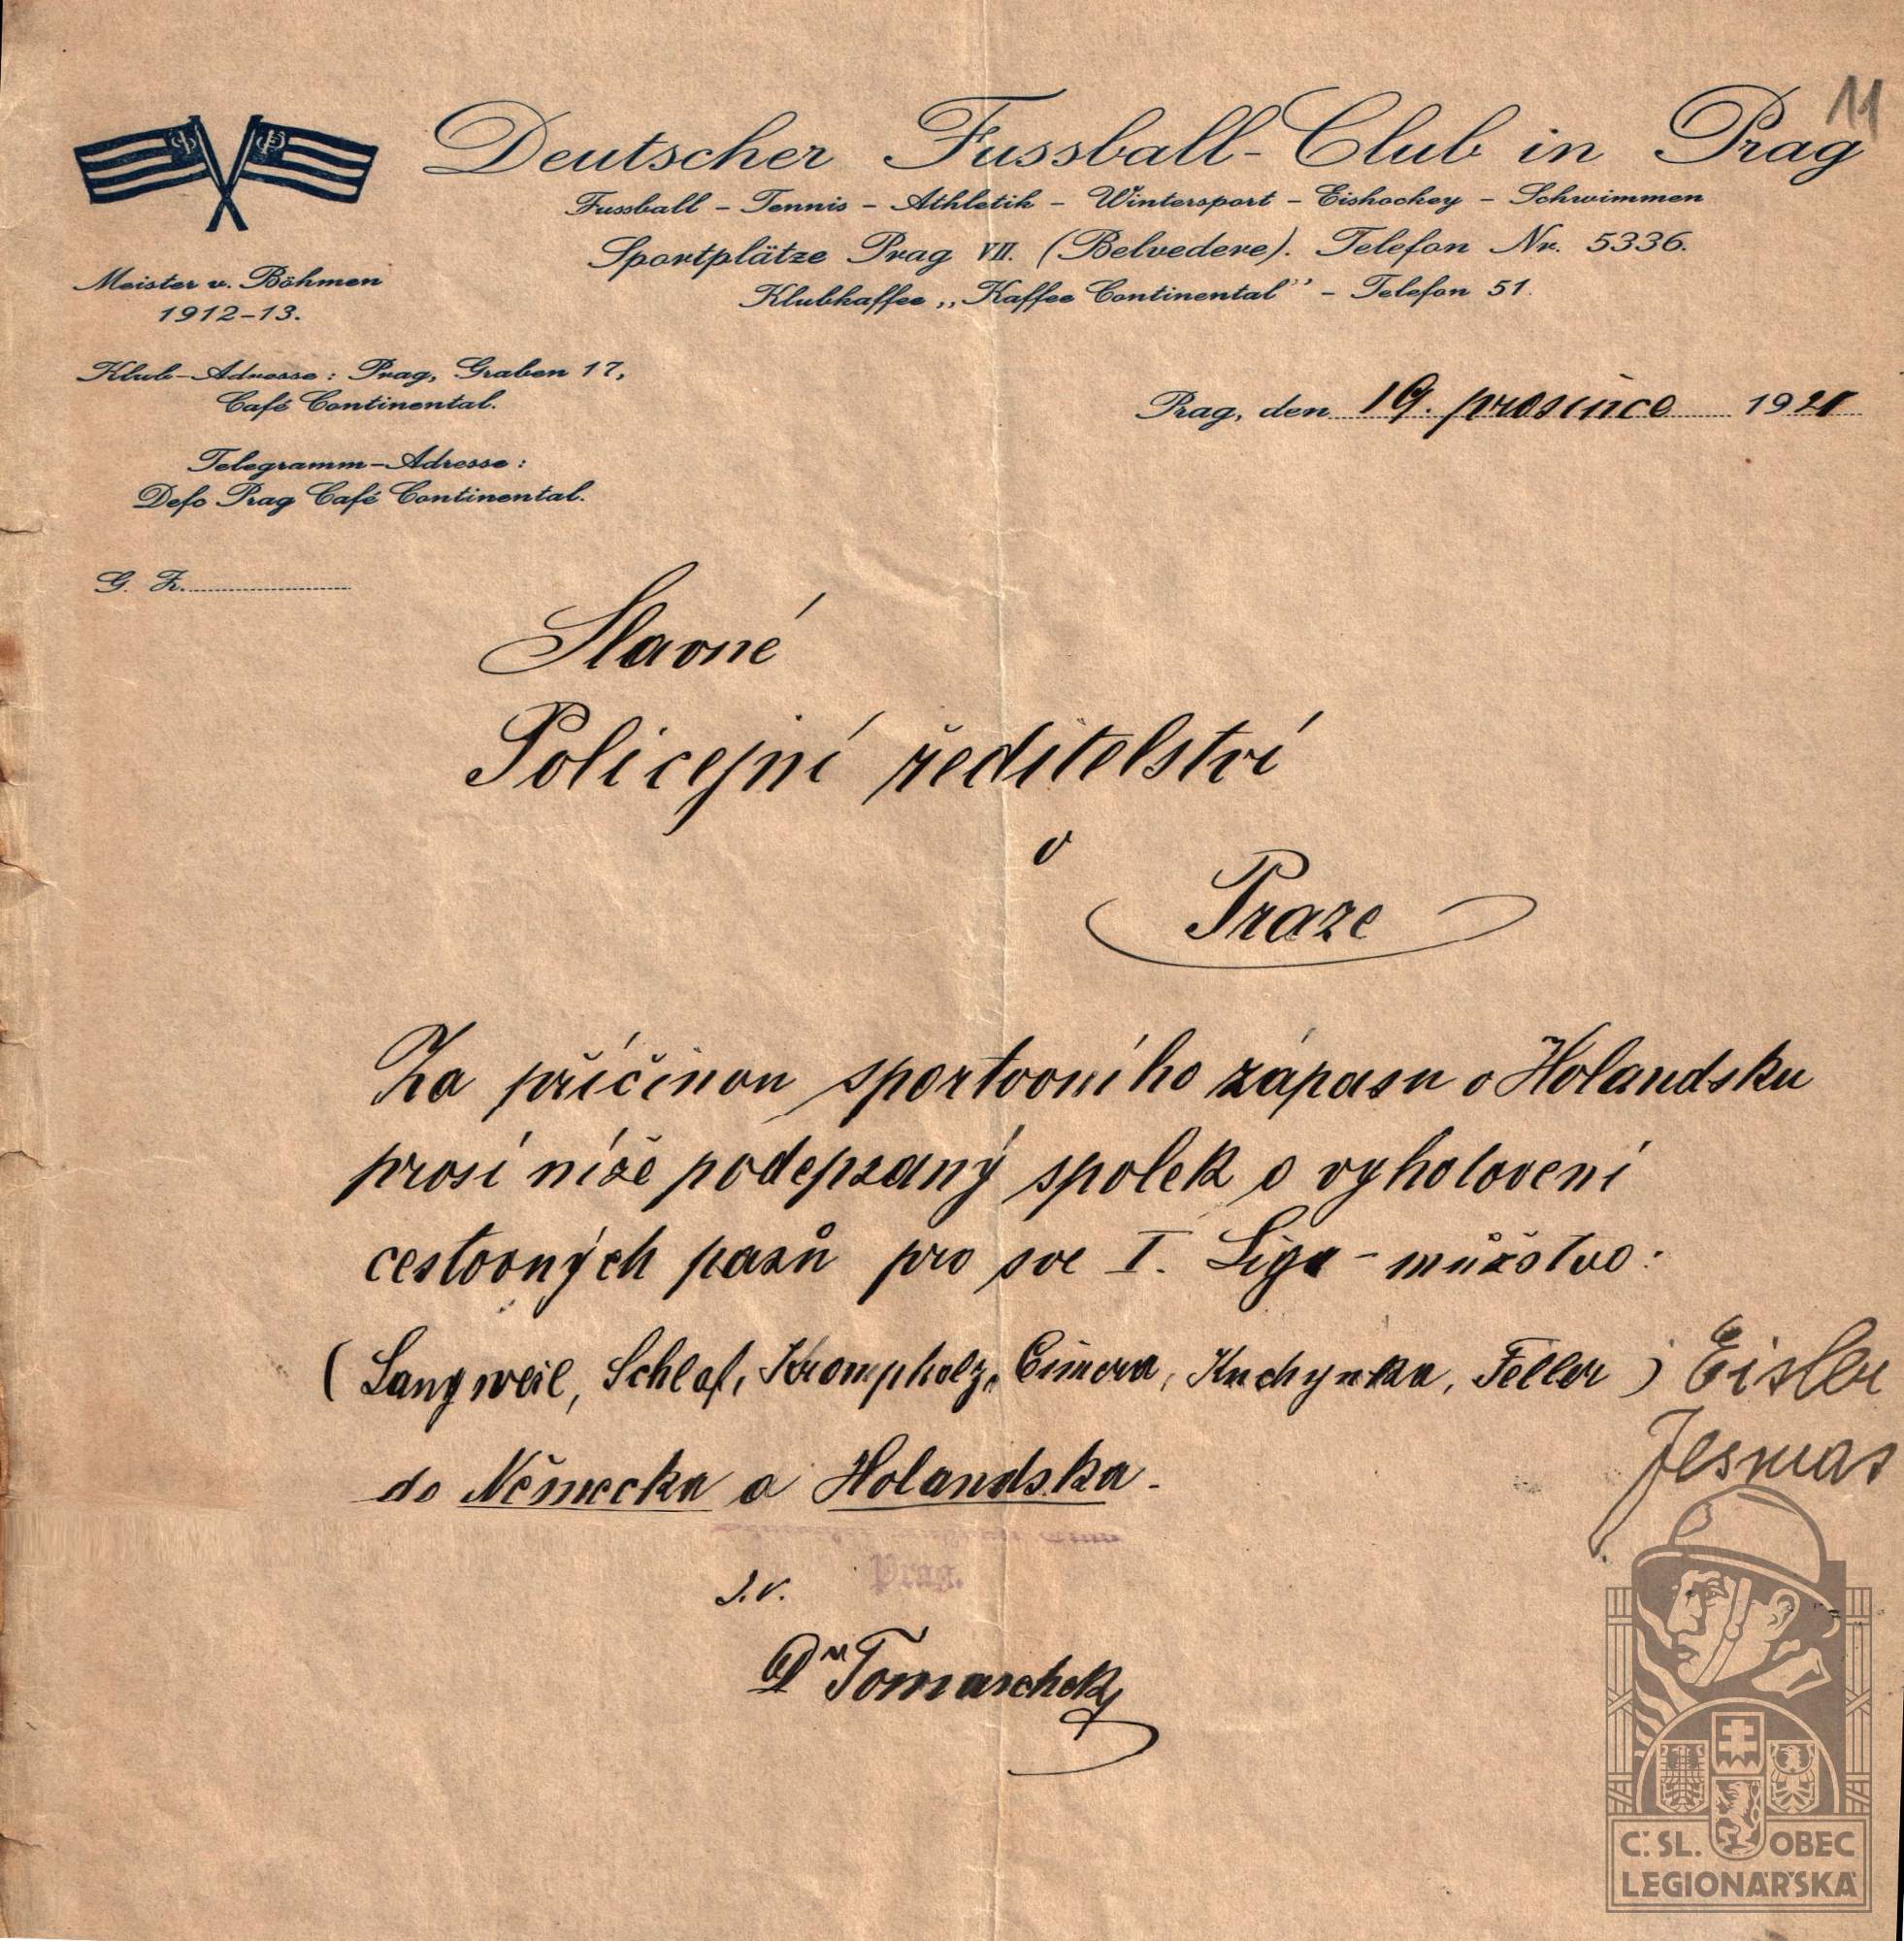 11
Deutscher Fussball-Club in Prag
Fussball - Tennis - Athletik - Wintersport - Eishockey - Schwimmen
Sportplätze Prag VII. (Belvedere). Telefon Nr. 5336.
Klubkaffee „Kaffee Continental" - Telefon 51.
Meister v. Böhmen
1912-13.
Klub-Adresse: Prag, Graben 17,
Café Continental.
Prag, den 19. prosince 1921
Telegramm-Adresse:
Defo Prag Café Continental.
G. Z.
Slavné
Policejní ředitelství
v
Praze
Za příčinou sportovního zápasu v Holandsku
prosí níže podepsaný spolek o vyhotovení
cestovných pasů pro sve I. Liga-mužstvo:
(Langweil, Schlaf, Krompholz, Cimera, Kuchynka, Feller) Eisler
do Německa a Holandska.
Prag.
I.V.
Dr Tomaschek
Č. SL. OBEC
LEGIONÁŘSKÁ